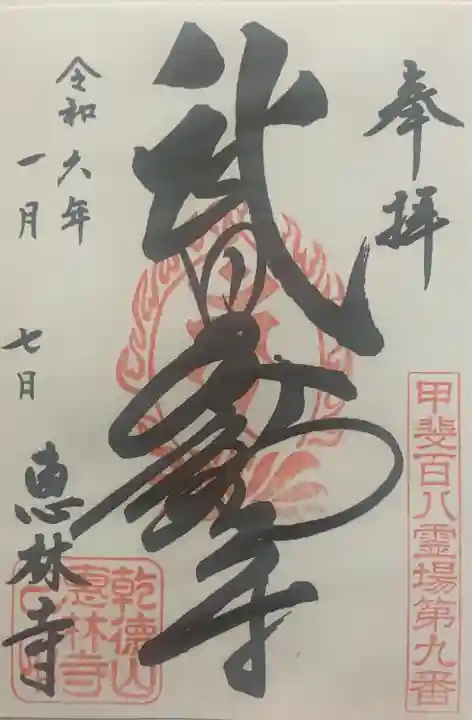 奉拝
甲斐百八霊場第九番
武田不動尊
令和六年
一月
七日
恵林寺
乾徳山
惠林寺